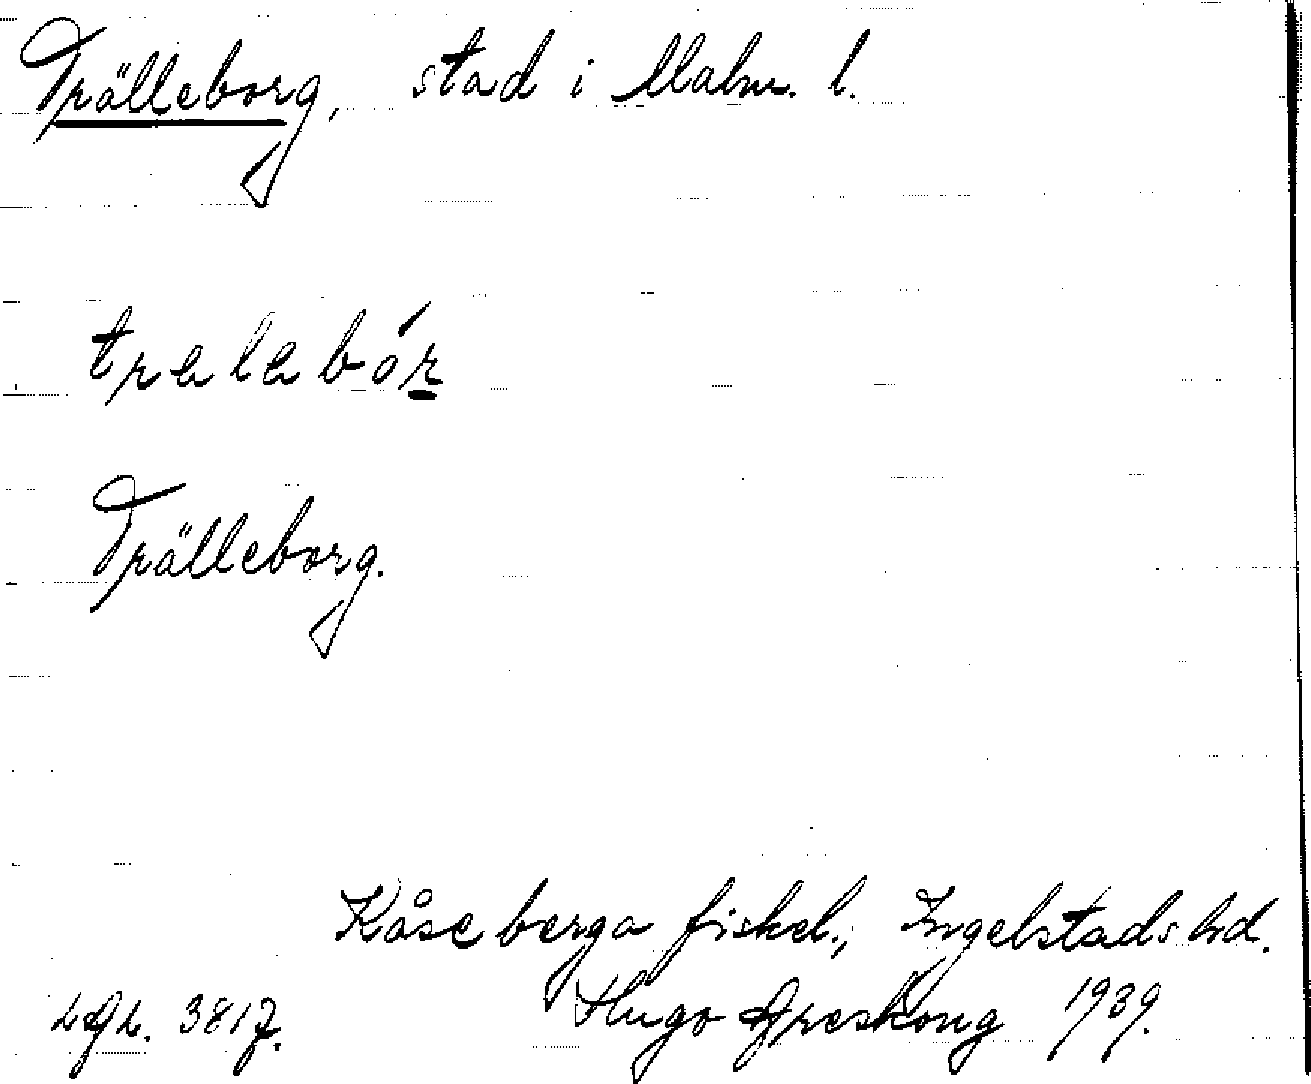 Trälleborg, stad i Malm. l.
tralabór
Trälleborg.
Kåseberga fiskel., Ingelstads hd.
Hugo Areskoug 1939.
LGL. 3817.